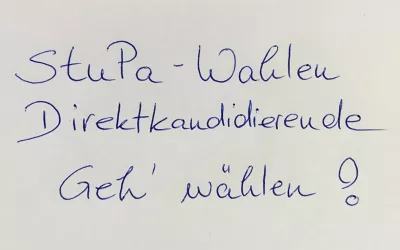 StuPa-Wahlen
Direktkandidierende
Geh' wählen!